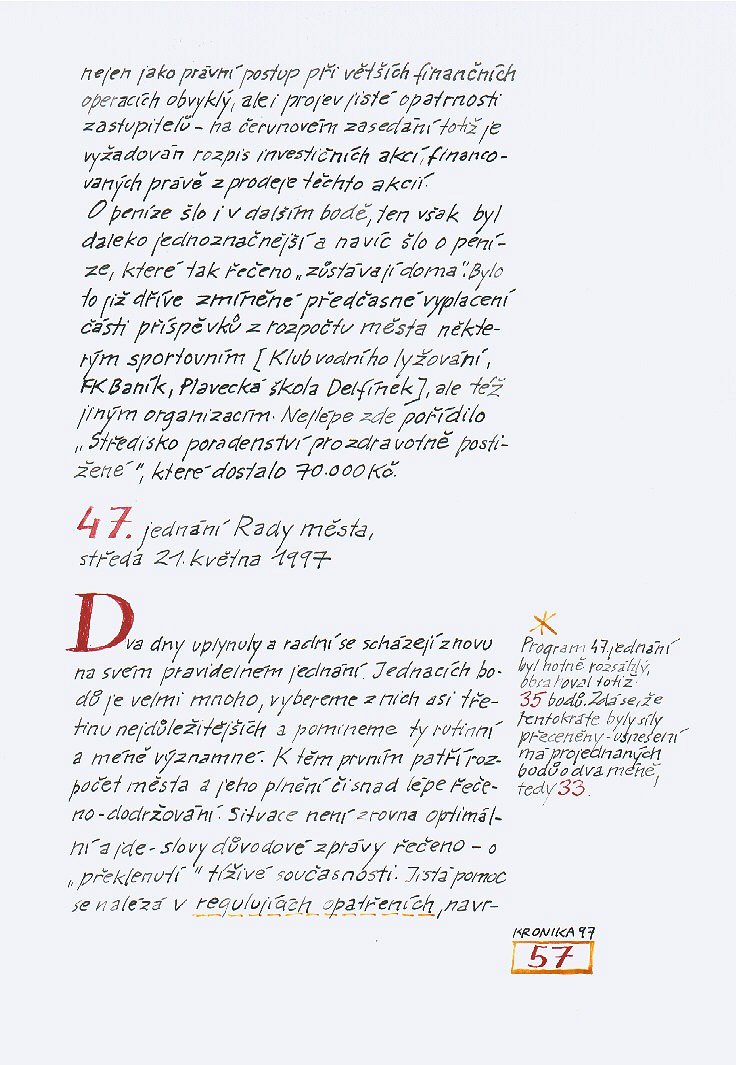 nejen jako právní postup při větších finančních
operacích obvyklý, ale i projev jisté opatrnosti
zastupitelů – na červnovém zasedání totiž je
vyžadován rozpis investičních akcí, financo-
vaných právě z prodeje těchto akcií.
O peníze šlo i v dalším bodě, ten však byl
daleko jednoznačnější a navíc šlo o pení-
ze, které tak řečeno „zůstávají doma“. Bylo
to již dříve zmíněné předčasné vyplacení
části příspěvků z rozpočtu města někte-
rým sportovním [Klub vodního lyžování,
FK Baník, Plavecká škola Delfínek], ale též
jiným organizacím. Nejlépe zde pořídilo
„Středisko poradenství pro zdravotně posti-
žené“, které dostalo 70.000 Kč.
47. jednání Rady města,
středa 21. května 1997
Dva dny uplynuly a radní se scházejí znovu
na svém pravidelném jednání. Jednacích bo-
dů je velmi mnoho, vybereme z nich asi tře-
tinu nejdůležitějších a pomineme ty rutinní
a méně významné. K těm prvním patří roz-
počet města a jeho plnění či snad lépe řeče-
no - dodržování. Situace není zrovna optimál-
ní a jde - slovy důvodové zprávy řečeno – o
„překlenutí“ tíživé současnosti. Jistá pomoc
se nalézá v regulujících opatřeních, navr-
*
Program 47. jednání
byl hotně rozsáhlý,
obsahoval totiž
35 bodů. Zdá se, že
tentokráte byly síly
přeceněny - usnesení
má projednaných
bodů o dva méně,
tedy 33.
KRONIKA 97
57